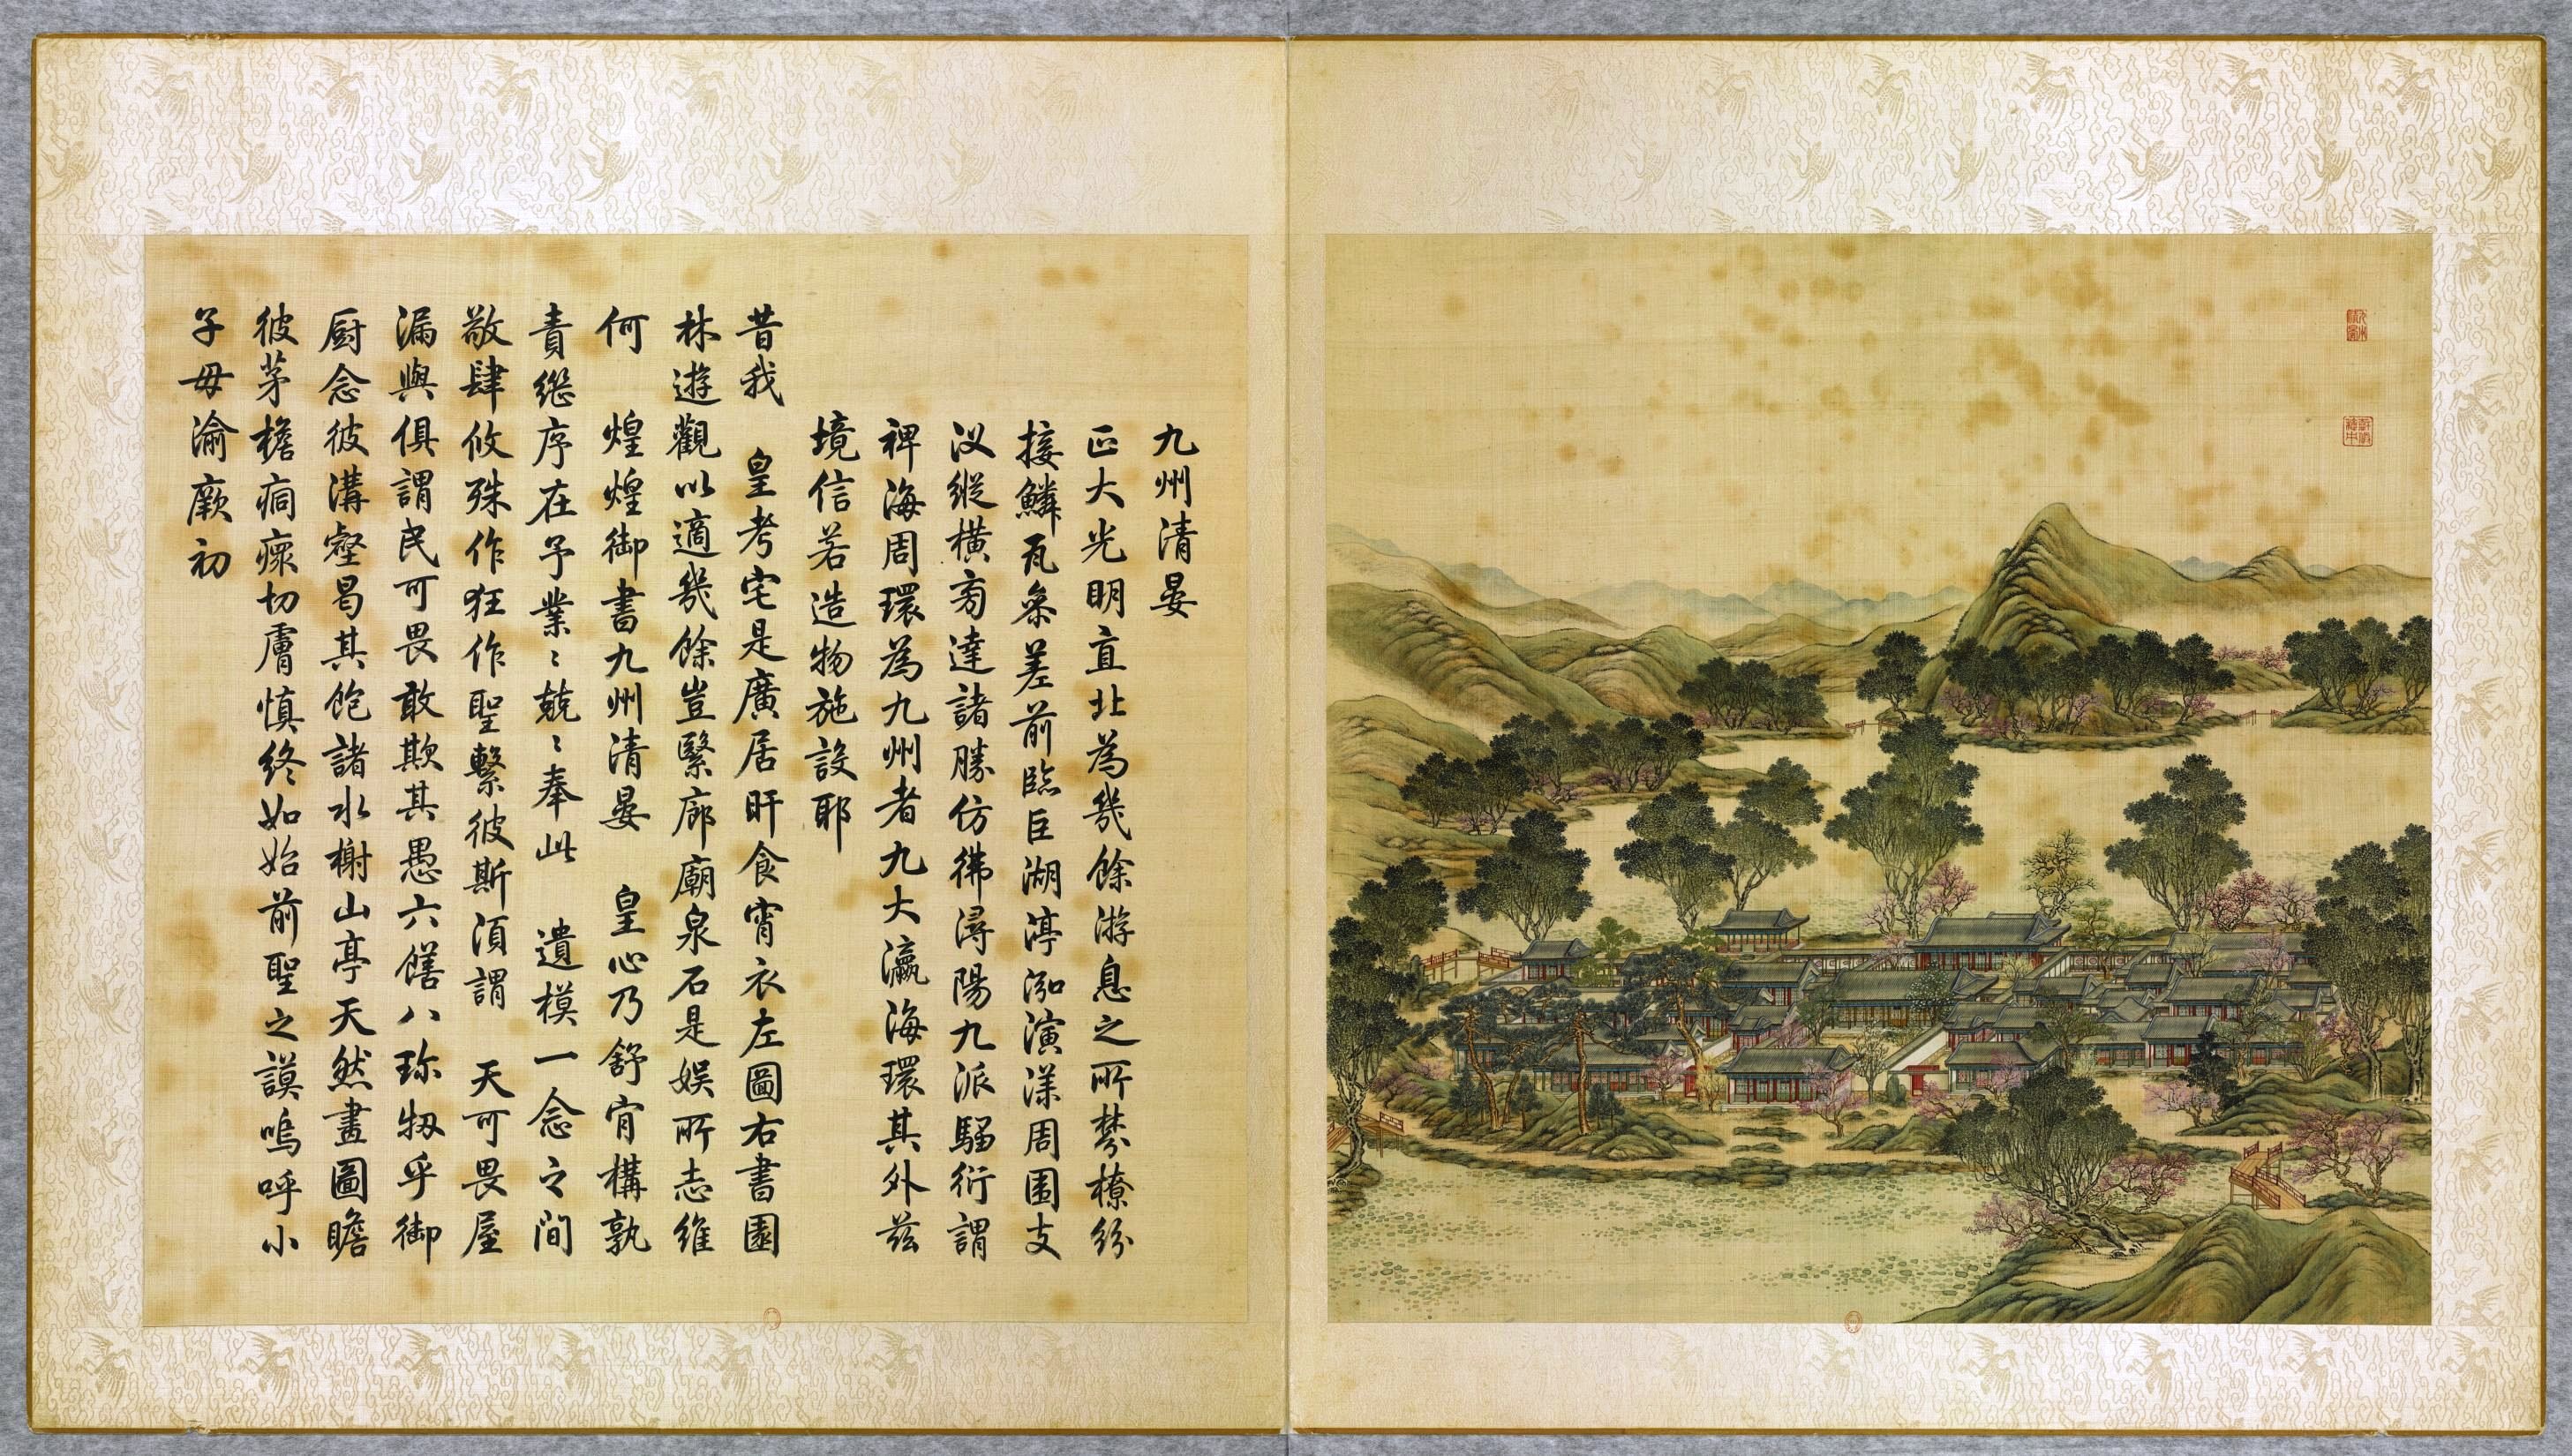 九州清晏
正大光明直北為幾餘游息之所棼橑紛
接鱗瓦參差前臨巨湖渟泓演漾周圍支
汊縱橫旁達諸勝仿彿潯陽九派騶衍謂
裨海周環為九州者九大瀛海環其外茲
境信若造物施設耶
昔我 皇考宅是廣居旰食宵衣左圖右書園
林遊觀以適幾餘豈緊廊廟泉石是娛所志維
何 煌煌御書九州清晏 皇心乃舒肯構孰
責繼序在予業〻兢〻奉此 遺模一念之間
敬肆攸殊作狂作聖繫彼斯須謂 天可畏屋
漏與俱謂民可畏敢欺其愚六饍八珍牣乎御
厨念彼溝壑曷其飽諸水榭山亭天然畫圖瞻
彼茅檐痌瘝切膚慎終如始前聖之謨嗚呼小
子毋渝厥初